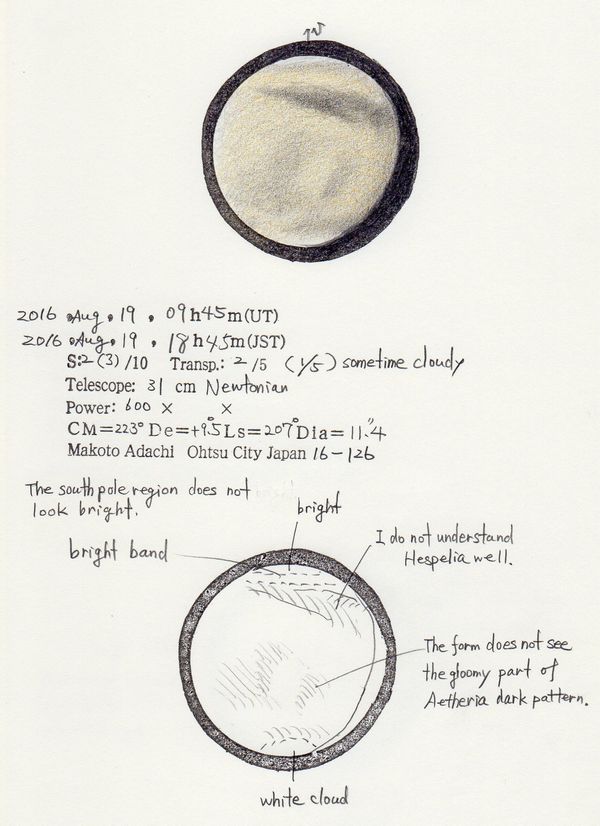 2016 Aug. 19. 09h45m(UT)
2016 Aug. 19. 18h45m(JST)
S:2(3)/10 Transp.: 2/5 (1/5) sometime cloudy
Telescope: 31 cm Newtonian
Power: 600 × ×
CM=223° De=+9.°5 Ls=207° Dia=11."4
Makoto Adachi Ohtsu City Japan 16-126
The south pole region does not
look bright.
bright
bright band
I do not understand
Hespelia well.
The form does not see
the gloomy part of
Aetheria dark pattern.
white cloud